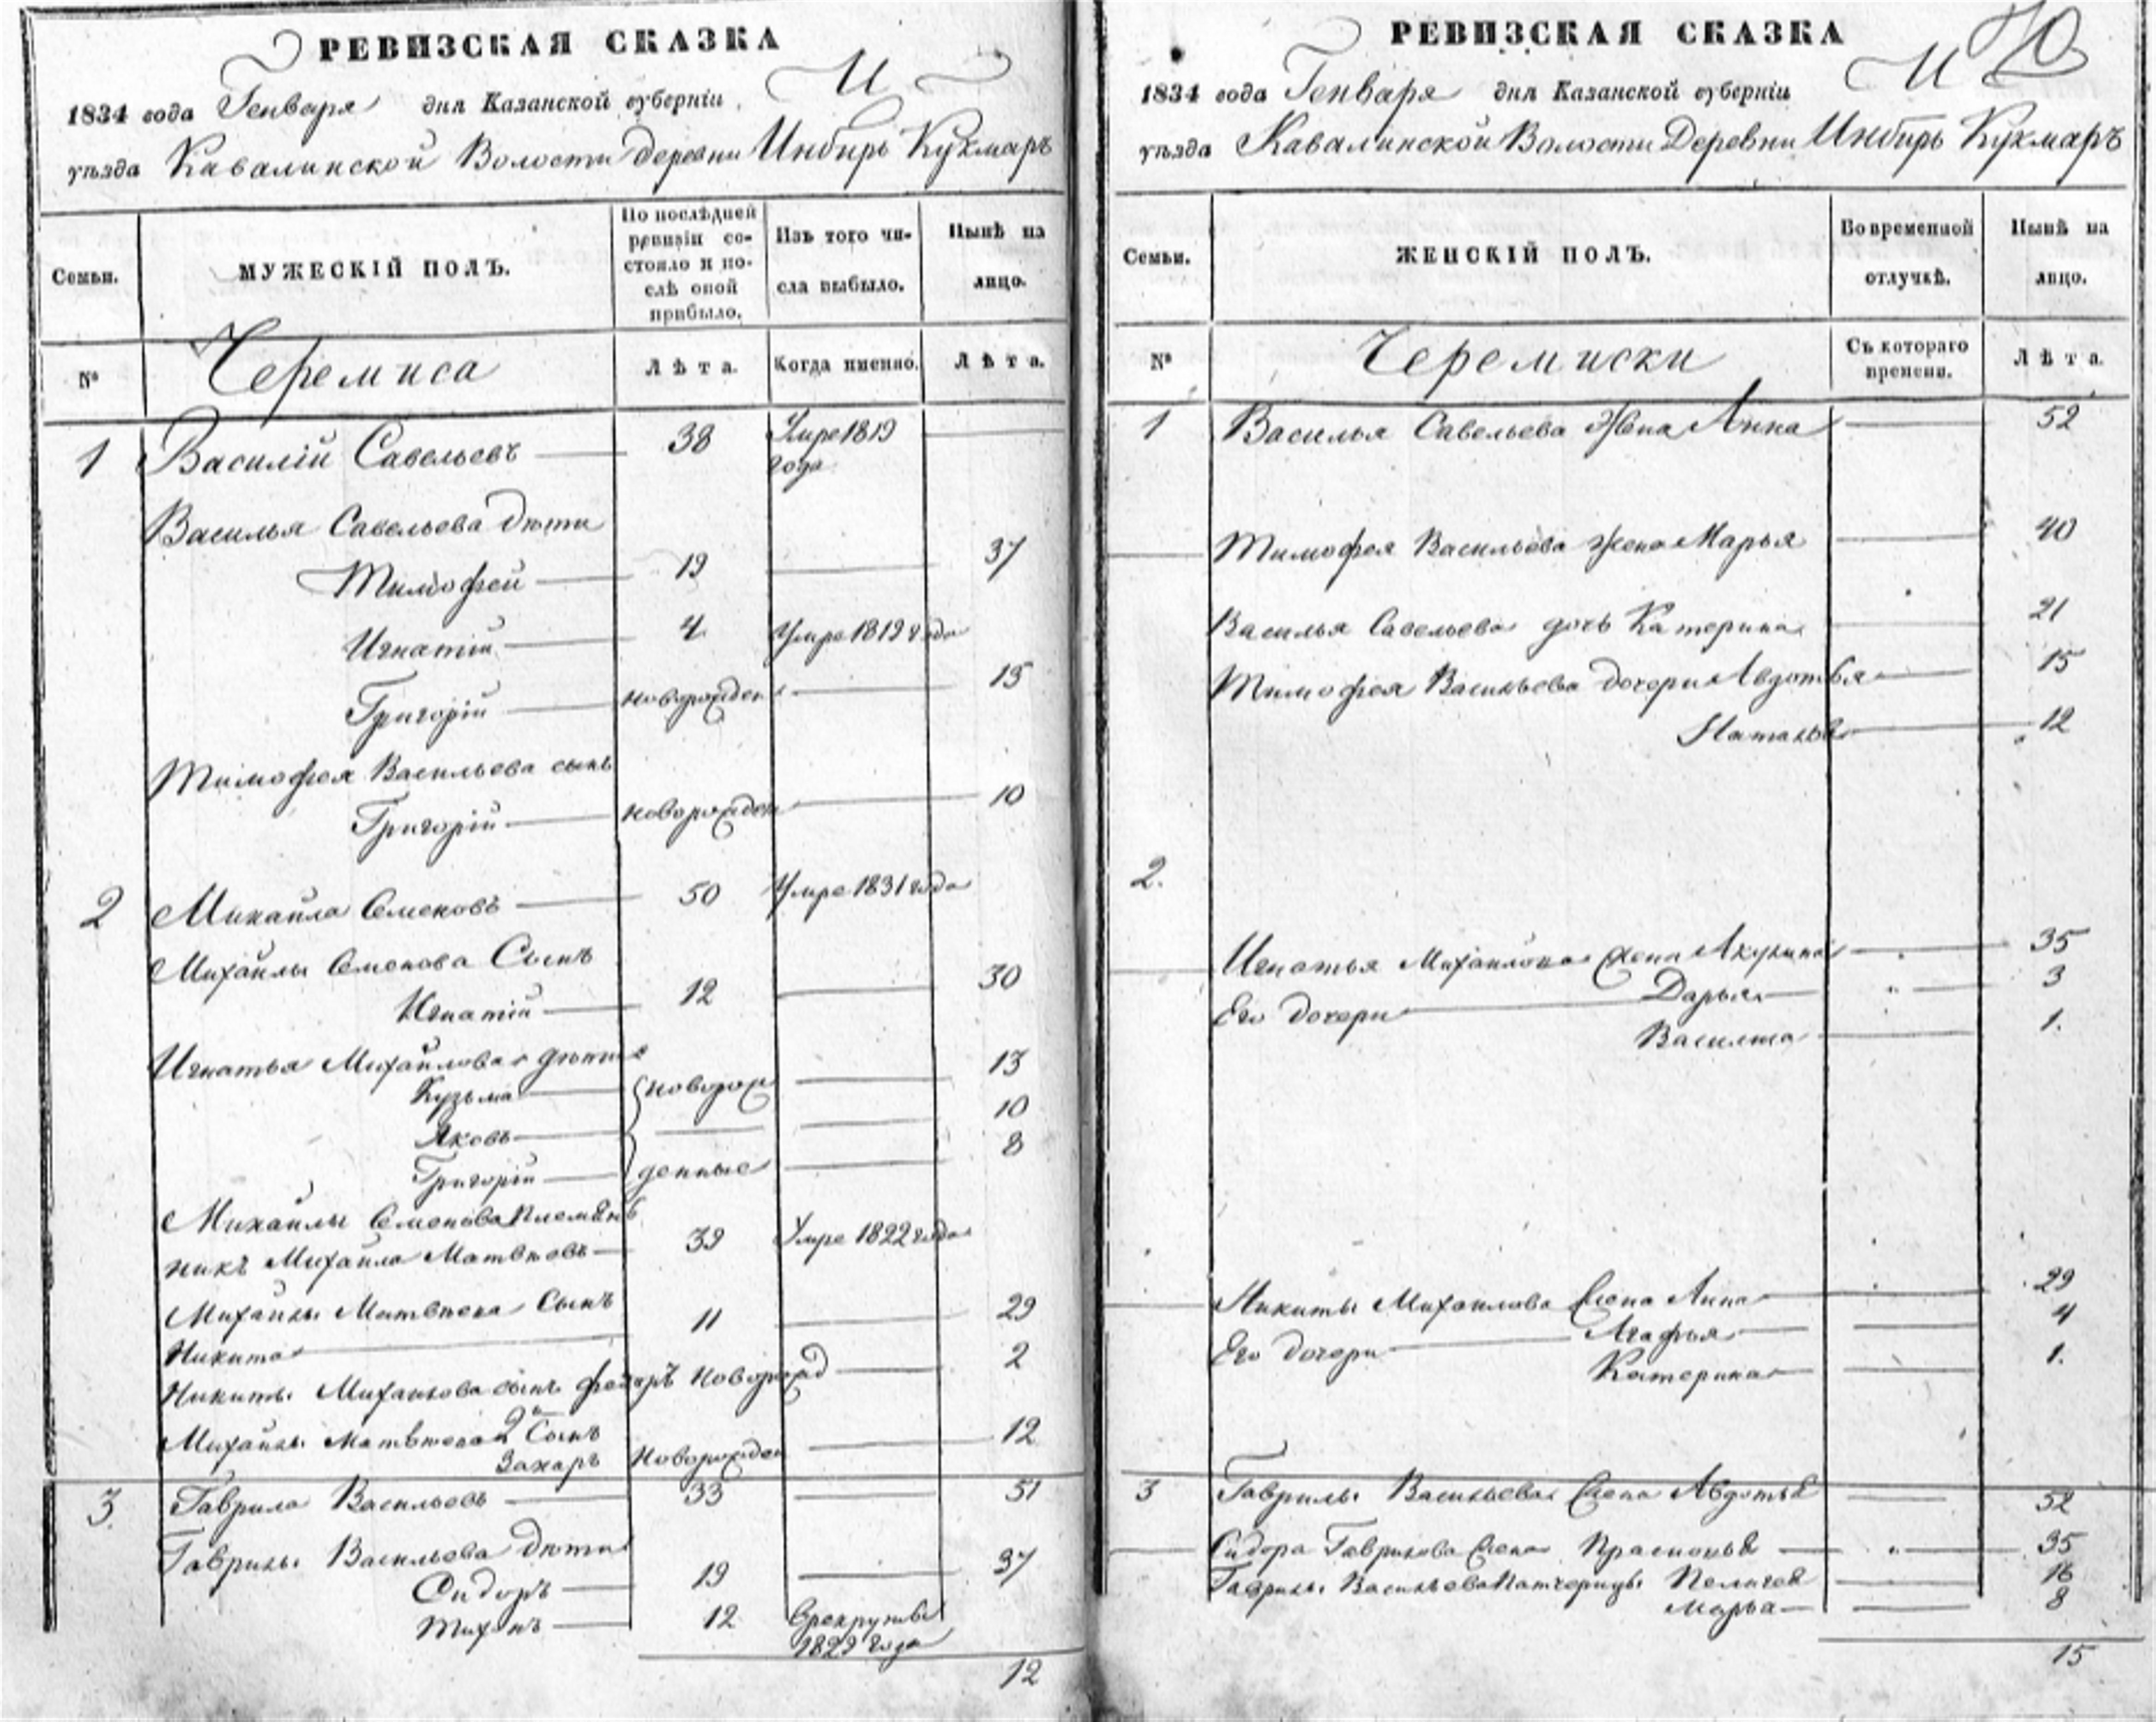 РЕВИЗСКАЯ СКАЗКА
1834 года Генваря дня Казанской губерніи
уѣзда Кавалинской Волости деревни Инбирь Кукмаръ
Семьи.
МУЖЕСКІЙ ПОЛЪ.
По послѣдней ревизіи состояло и послѣ оной прибыло.
Изъ того числа выбыло.
Нынѣ на лицо.
№ Черемиса Лѣта. Когда именно. Лѣта.
1 Василій Савельевъ 38 Умре 1819 года
Василья Савельева дѣти
Тимофей 19 37
Игнатій 4 Умре 1819 года
Григорій новорожден 15
Тимофея Васильева сынъ
Григорій новорожден 10
2 Михайла Семеновъ 50 Умре 1831 года
Михайлы Семенова Сынъ
Игнатій 12 30
Игнатья Михайлова дѣти
Кузьма новорож 13
Яковъ 10
Григорій денные 8
Михайлы Семенова Племян
никъ Михайла Матвѣевъ 39 Умре 1822 года
Михайлы Матвѣева Сынъ
Никита 11 29
Никиты Михайлова сынъ Федоръ Новорожд 2
Михайлы Матвѣева 2й Сынъ
Захаръ Новорожден 12
3. Гаврила Васильевъ 33 51
Гаврилы Васильева дѣти
Сидоръ 19 37
Тихонъ 12 Врекруты
1829 года
12
РЕВИЗСКАЯ СКАЗКА
1834 года Генваря дня Казанской губерніи
уѣзда Кавалинской Волости Деревни Инбирь Кукмаръ
Семьи.
ЖЕНСКІЙ ПОЛЪ.
Во временной отлучкѣ.
Нынѣ на лицо.
№ Черемиски Съ котораго времени. Лѣта.
1 Василья Савельева Жена Анна 52
Тимофея Васильева жена Марья 40
Василья Савельева дочь Катерина 21
Тимофея Васильева дочери Авдотья 15
Наталья 12
2.
Игнатья Михайлова жена Акулина 35
Его дочери Дарья 3
Василиса 1.
Никиты Михайлова жена Анна 29
Его дочери Агафья 4
Катерина 1.
3 Гаврилы Васильева жена Авдотья 52
Сидора Гаврилова жена Прасковья 35
Гаврилы Васильева Патчерицы Пелагея 16
Марья 8
15